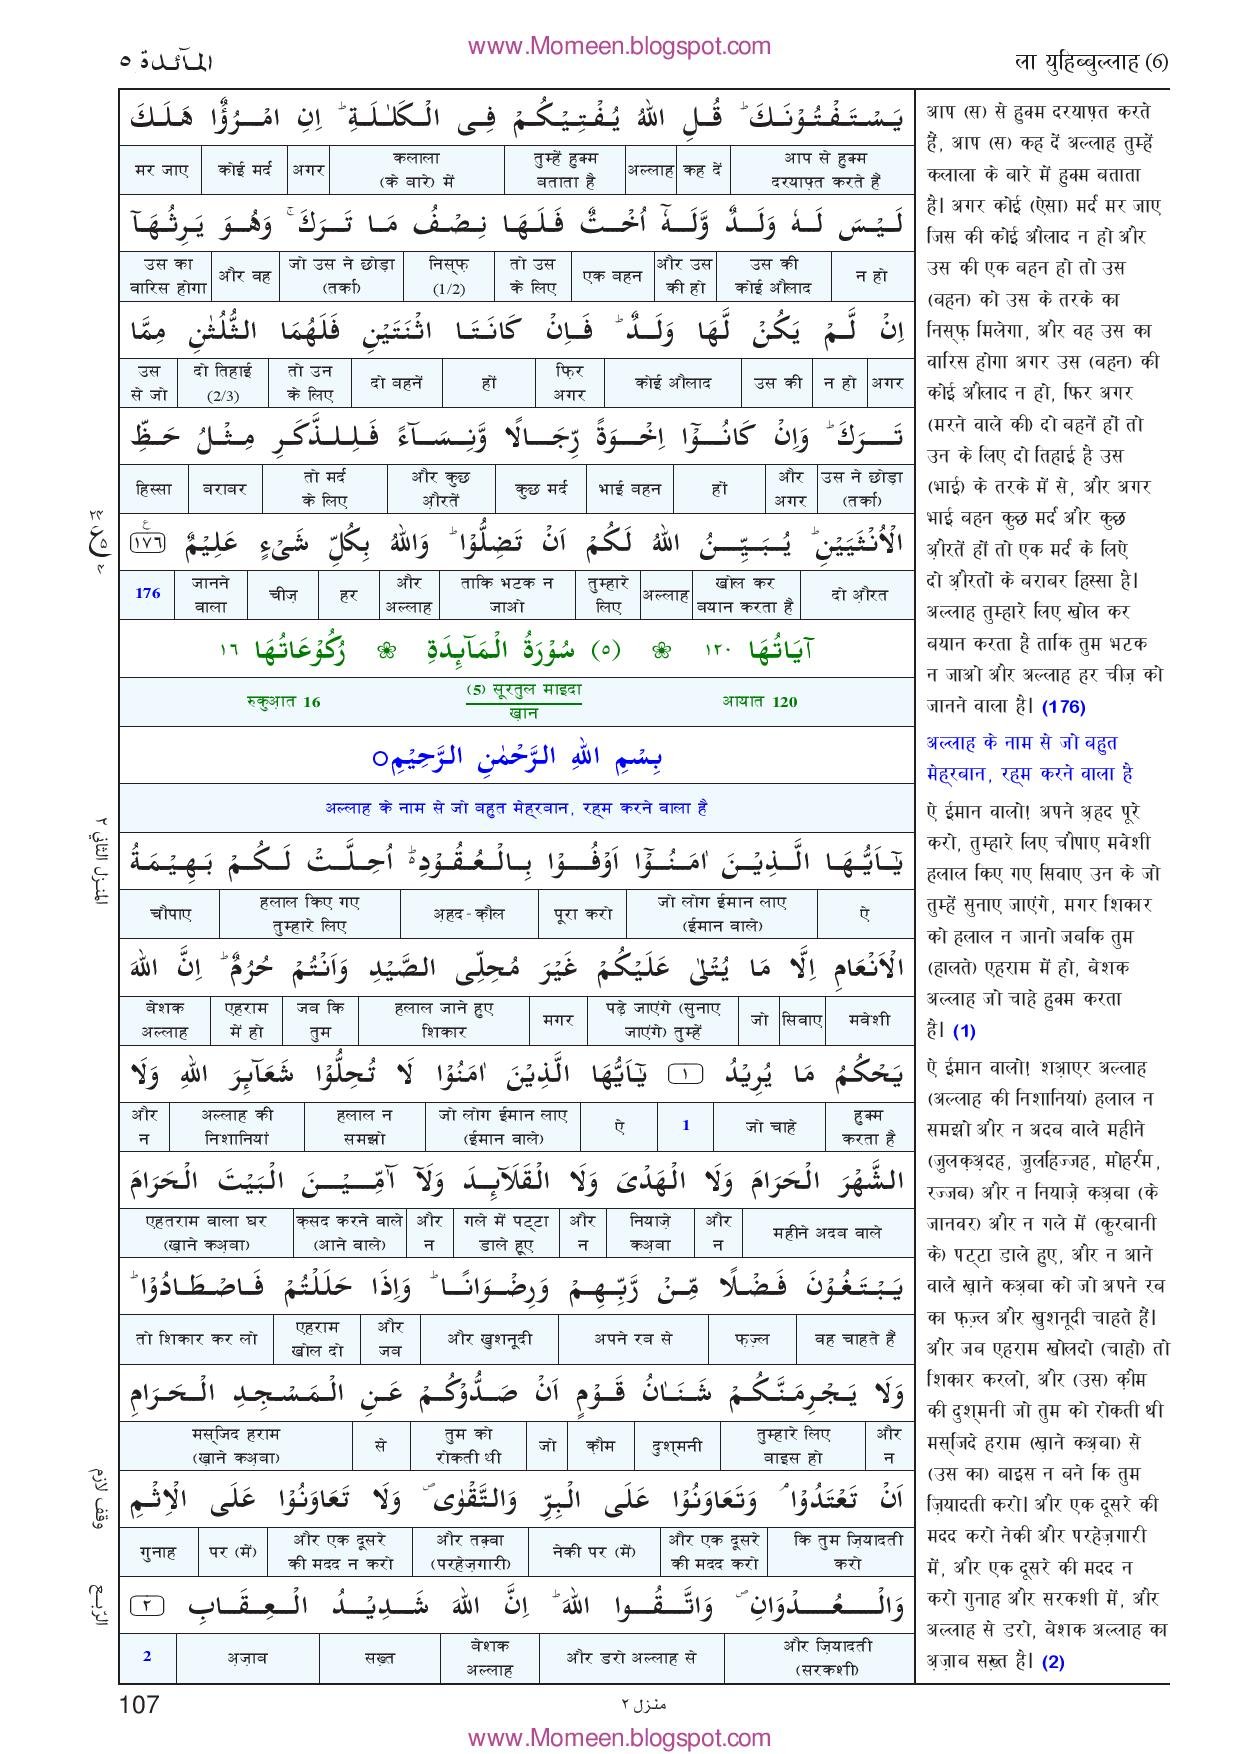 www.Momeen.blogspot.com
ला युहिब्बुल्लाह (6)
المآئدة ٥
یَسْتَفْتُوْنَكَ ؕ قُلِ اللّٰهُ یُفْتِیْكُمْ فِی الْكَلٰلَةِ ؕ اِنِ امْرُؤٌا هَلَكَ
आप से हुक्म दरयाफ़्त करते हैं | कह दें | अल्लाह | तुम्हें हुक्म बताता है | कलाला (के बारे) में | अगर | कोई मर्द | मर जाए
لَیْسَ لَهٗ وَلَدٌ وَّلَهٗۤ اُخْتٌ فَلَهَا نِصْفُ مَا تَرَكَ ۚ وَهُوَ یَرِثُهَاۤ
न हो | उस की कोई औलाद | और उस की हो | एक बहन | तो उस के लिए | निस्फ़ (1/2) | जो उस ने छोड़ा (तर्का) | और वह | उस का वारिस होगा
اِنْ لَّمْ یَكُنْ لَّهَا وَلَدٌ ؕ فَاِنْ كَانَتَا اثْنَتَیْنِ فَلَهُمَا الثُّلُثٰنِ مِمَّا
अगर | न हो | उस की | कोई औलाद | फिर अगर | हों | दो बहनें | तो उन के लिए | दो तिहाई (2/3) | उस से जो
تَرَكَ ؕ وَاِنْ كَانُوْۤا اِخْوَةً رِّجَالًا وَّنِسَآءً فَلِلذَّكَرِ مِثْلُ حَظِّ
उस ने छोड़ा (तर्का) | और अगर | हों | भाई बहन | कुछ मर्द | और कुछ औ़रतें | तो मर्द के लिए | बराबर | हिस्सा
الْاُنْثَیَیْنِ ؕ یُبَیِّنُ اللّٰهُ لَكُمْ اَنْ تَضِلُّوْا ؕ وَاللّٰهُ بِكُلِّ شَیْءٍ عَلِیْمٌ ١٧٦
दो औ़रत | खोल कर बयान करता है | अल्लाह | तुम्हारे लिए | ताकि भटक न जाओ | और अल्लाह | हर | चीज़ | जानने वाला | 176
آیَاتُهَا ١٢٠ ❀ (٥) سُوْرَةُ الْمَآىِٕدَةِ ❀ رُكُوْعَاتُهَا ١٦
आयात 120 (5) सूरतुल माइदा ख़ान रुकुअ़ात 16
بِسْمِ اللّٰهِ الرَّحْمٰنِ الرَّحِیْمِ
अल्लाह के नाम से जो बहुत मेह्रबान, रह्म करने वाला है
یٰۤاَیُّهَا الَّذِیْنَ اٰمَنُوْۤا اَوْفُوْا بِالْعُقُوْدِ ؕ اُحِلَّتْ لَكُمْ بَهِیْمَةُ
ऐ | जो लोग ईमान लाए (ईमान वाले) | पूरा करो | अ़हद-क़ौल | हलाल किए गए तुम्हारे लिए | चौपाए
الْاَنْعَامِ اِلَّا مَا یُتْلٰی عَلَیْكُمْ غَیْرَ مُحِلِّی الصَّیْدِ وَاَنْتُمْ حُرُمٌ ؕ اِنَّ اللّٰهَ
मवेशी | सिवाए | जो | पढ़े जाएंगे (सुनाए जाएंगे) तुम्हें | मगर | हलाल जाने हुए शिकार | जब कि तुम | एहराम में हो | बेशक अल्लाह
یَحْكُمُ مَا یُرِیْدُ ١ یٰۤاَیُّهَا الَّذِیْنَ اٰمَنُوْا لَا تُحِلُّوْا شَعَآىِٕرَ اللّٰهِ وَلَا
हुक्म करता है | जो चाहे | 1 | ऐ | जो लोग ईमान लाए (ईमान वाले) | हलाल न समझो | अल्लाह की निशानियां | और न
الشَّهْرَ الْحَرَامَ وَلَا الْهَدْیَ وَلَا الْقَلَآىِٕدَ وَلَاۤ آٰمِّیْنَ الْبَیْتَ الْحَرَامَ
महीने अदब वाले | और न | नियाज़े कअ़बा | और न | गले में पट्टा डाले हूए | और न | क़सद करने वाले (आने वाले) | एहतराम वाला घर (ख़ाने कअ़बा)
یَبْتَغُوْنَ فَضْلًا مِّنْ رَّبِّهِمْ وَرِضْوَانًا ؕ وَاِذَا حَلَلْتُمْ فَاصْطَادُوْا ؕ
वह चाहते हैं | फ़ज़्ल | अपने रब से | और खुशनूदी | और जब | एहराम खोल दो | तो शिकार कर लो
وَلَا یَجْرِمَنَّكُمْ شَنَاٰنُ قَوْمٍ اَنْ صَدُّوْكُمْ عَنِ الْمَسْجِدِ الْحَرَامِ
और न | तुम्हारे लिए बाइस हो | दुश्मनी | क़ौम | जो | तुम को रोकती थी | से | मस्जिद हराम (ख़ाने कअ़बा)
اَنْ تَعْتَدُوْا ۘ وَتَعَاوَنُوْا عَلَی الْبِرِّ وَالتَّقْوٰی ۪ وَلَا تَعَاوَنُوْا عَلَی الْاِثْمِ
कि तुम ज़ियादती करो | और एक दूसरे की मदद करो | नेकी पर (में) | और तक़्वा (परहेज़गारी) | और एक दूसरे की मदद न करो | पर (में) | गुनाह
وَالْعُدْوَانِ ۪ وَاتَّقُوا اللّٰهَ ؕ اِنَّ اللّٰهَ شَدِیْدُ الْعِقَابِ ٢
और ज़ियादती (सरकशी) | और डरो अल्लाह से | बेशक अल्लाह | सख़्त | अ़ज़ाब | 2
आप (स) से हुक्म दरयाफ़्त करते
हैं, आप (स) कह दें अल्लाह तुम्हें
कलाला के बारे में हुक्म बताता
है। अगर कोई (ऐसा) मर्द मर जाए
जिस की कोई औलाद न हो और
उस की एक बहन हो तो उस
(बहन) को उस के तरके का
निस्फ़ मिलेगा, और वह उस का
वारिस होगा अगर उस (बहन) की
कोई औलाद न हो, फिर अगर
(मरने वाले की) दो बहनें हों तो
उन के लिए दो तिहाई है उस
(भाई) के तरके में से, और अगर
भाई बहन कुछ मर्द और कुछ
औ़रतें हों तो एक मर्द के लिऐ
दो औ़रतों के बराबर हिस्सा है।
अल्लाह तुम्हारे लिए खोल कर
बयान करता है ताकि तुम भटक
न जाओ और अल्लाह हर चीज़ को
जानने वाला है। (176)
अल्लाह के नाम से जो बहुत
मेह्रबान, रह्म करने वाला है
ऐ ईमान वालो! अपने अ़हद पूरे
करो, तुम्हारे लिए चौपाए मवेशी
हलाल किए गए सिवाए उन के जो
तुम्हें सुनाए जाएंगे, मगर शिकार
को हलाल न जानो जबकि तुम
(हालते) एहराम में हो, बेशक
अल्लाह जो चाहे हुक्म करता
है। (1)
ऐ ईमान वालो! शअ़ाएर अल्लाह
(अल्लाह की निशानियां) हलाल न
समझो और न अदब वाले महीने
(जुलक़अ़दह, जुलहिज्जह, मोहर्रम,
रज्जब) और न नियाज़े कअ़बा (के
जानवर) और न गले में (कुरबानी
के) पट्टा डाले हुए, और न आने
वाले ख़ाने कअ़बा को जो अपने रब
का फ़ज़्ल और खुशनूदी चाहते हैं।
और जब एहराम खोलदो (चाहो) तो
शिकार करलो, और (उस) क़ौम
की दुश्मनी जो तुम को रोकती थी
मस्जिदे हराम (ख़ाने कअ़बा) से
(उस का) बाइस न बने कि तुम
ज़ियादती करो। और एक दूसरे की
मदद करो नेकी और परहेज़गारी
में, और एक दूसरे की मदद न
करो गुनाह और सरकशी में, और
अल्लाह से डरो, बेशक अल्लाह का
अ़ज़ाब सख़्त है। (2)
المنزل الثاني ٢
وقف لازم
الربع
107
منزل ٢
www.Momeen.blogspot.com